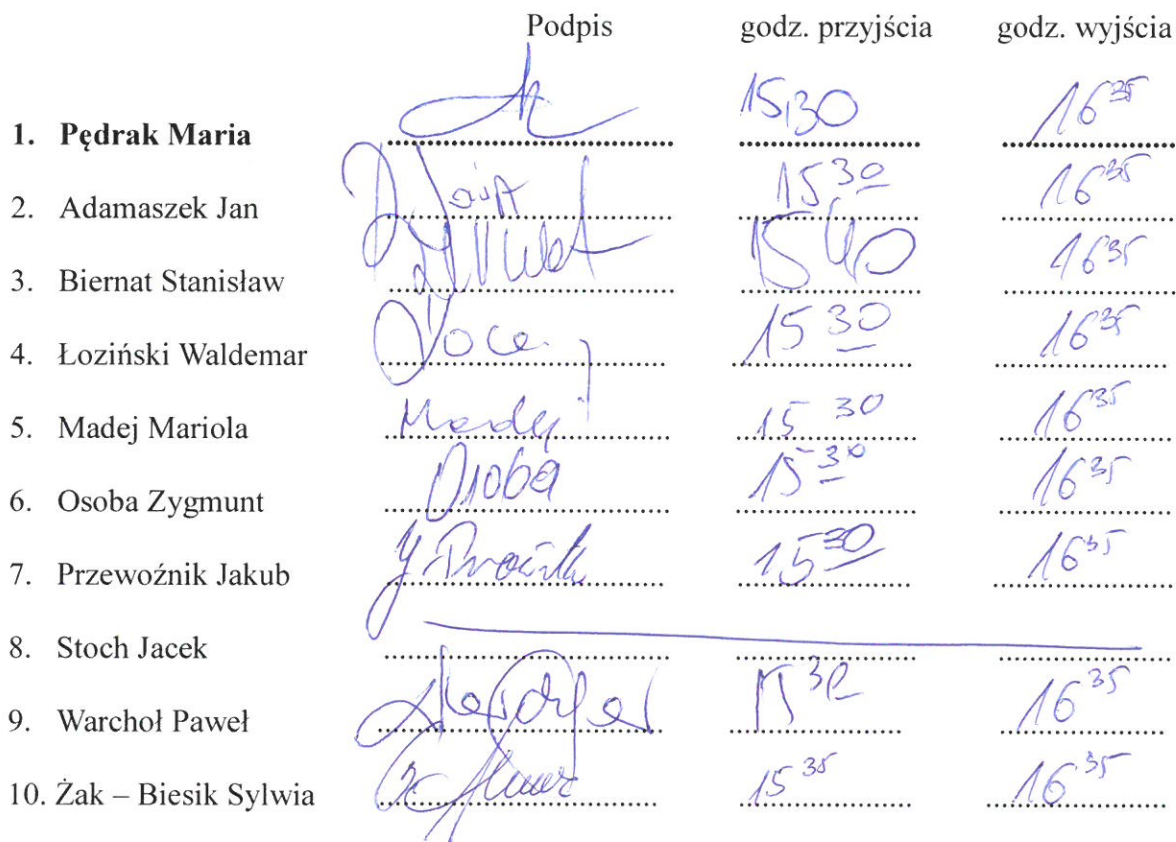 Podpis godz. przyjścia godz. wyjścia
1. Pędrak Maria 15,30 16 35
2. Adamaszek Jan 15 30 16 35
3. Biernat Stanisław 15 40 16 35
4. Łoziński Waldemar 15 30 16 35
5. Madej Mariola Madej 15 30 16 35
6. Osoba Zygmunt Osoba 15 30 16 35
7. Przewoźnik Jakub 15 30 16 35
8. Stoch Jacek
9. Warchoł Paweł 15 30 16 35
10. Żak – Biesik Sylwia 15 35 16 35